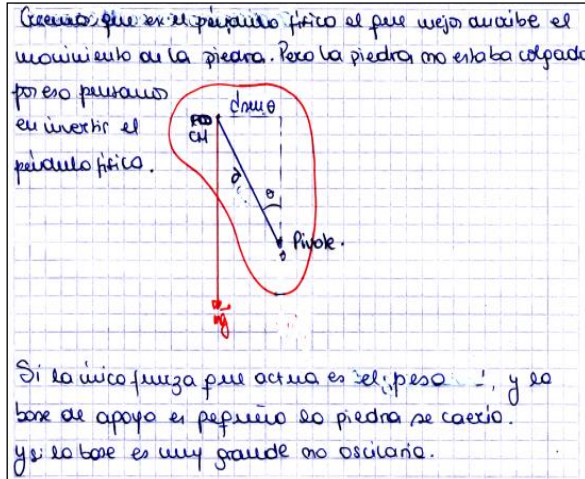 Creemos que es el péndulo físico el que mejor describe el
movimiento de la piedra. Pero la piedra no estaba colgada
por eso pensamos
en invertir el
péndulo físico.
d senθ
CM
d
θ
Pivote.
mg
Si la única fuerza que actua es el peso, y la
base de apoyo es pequeño la piedra se caería.
y si la base es muy grande no oscilaria.